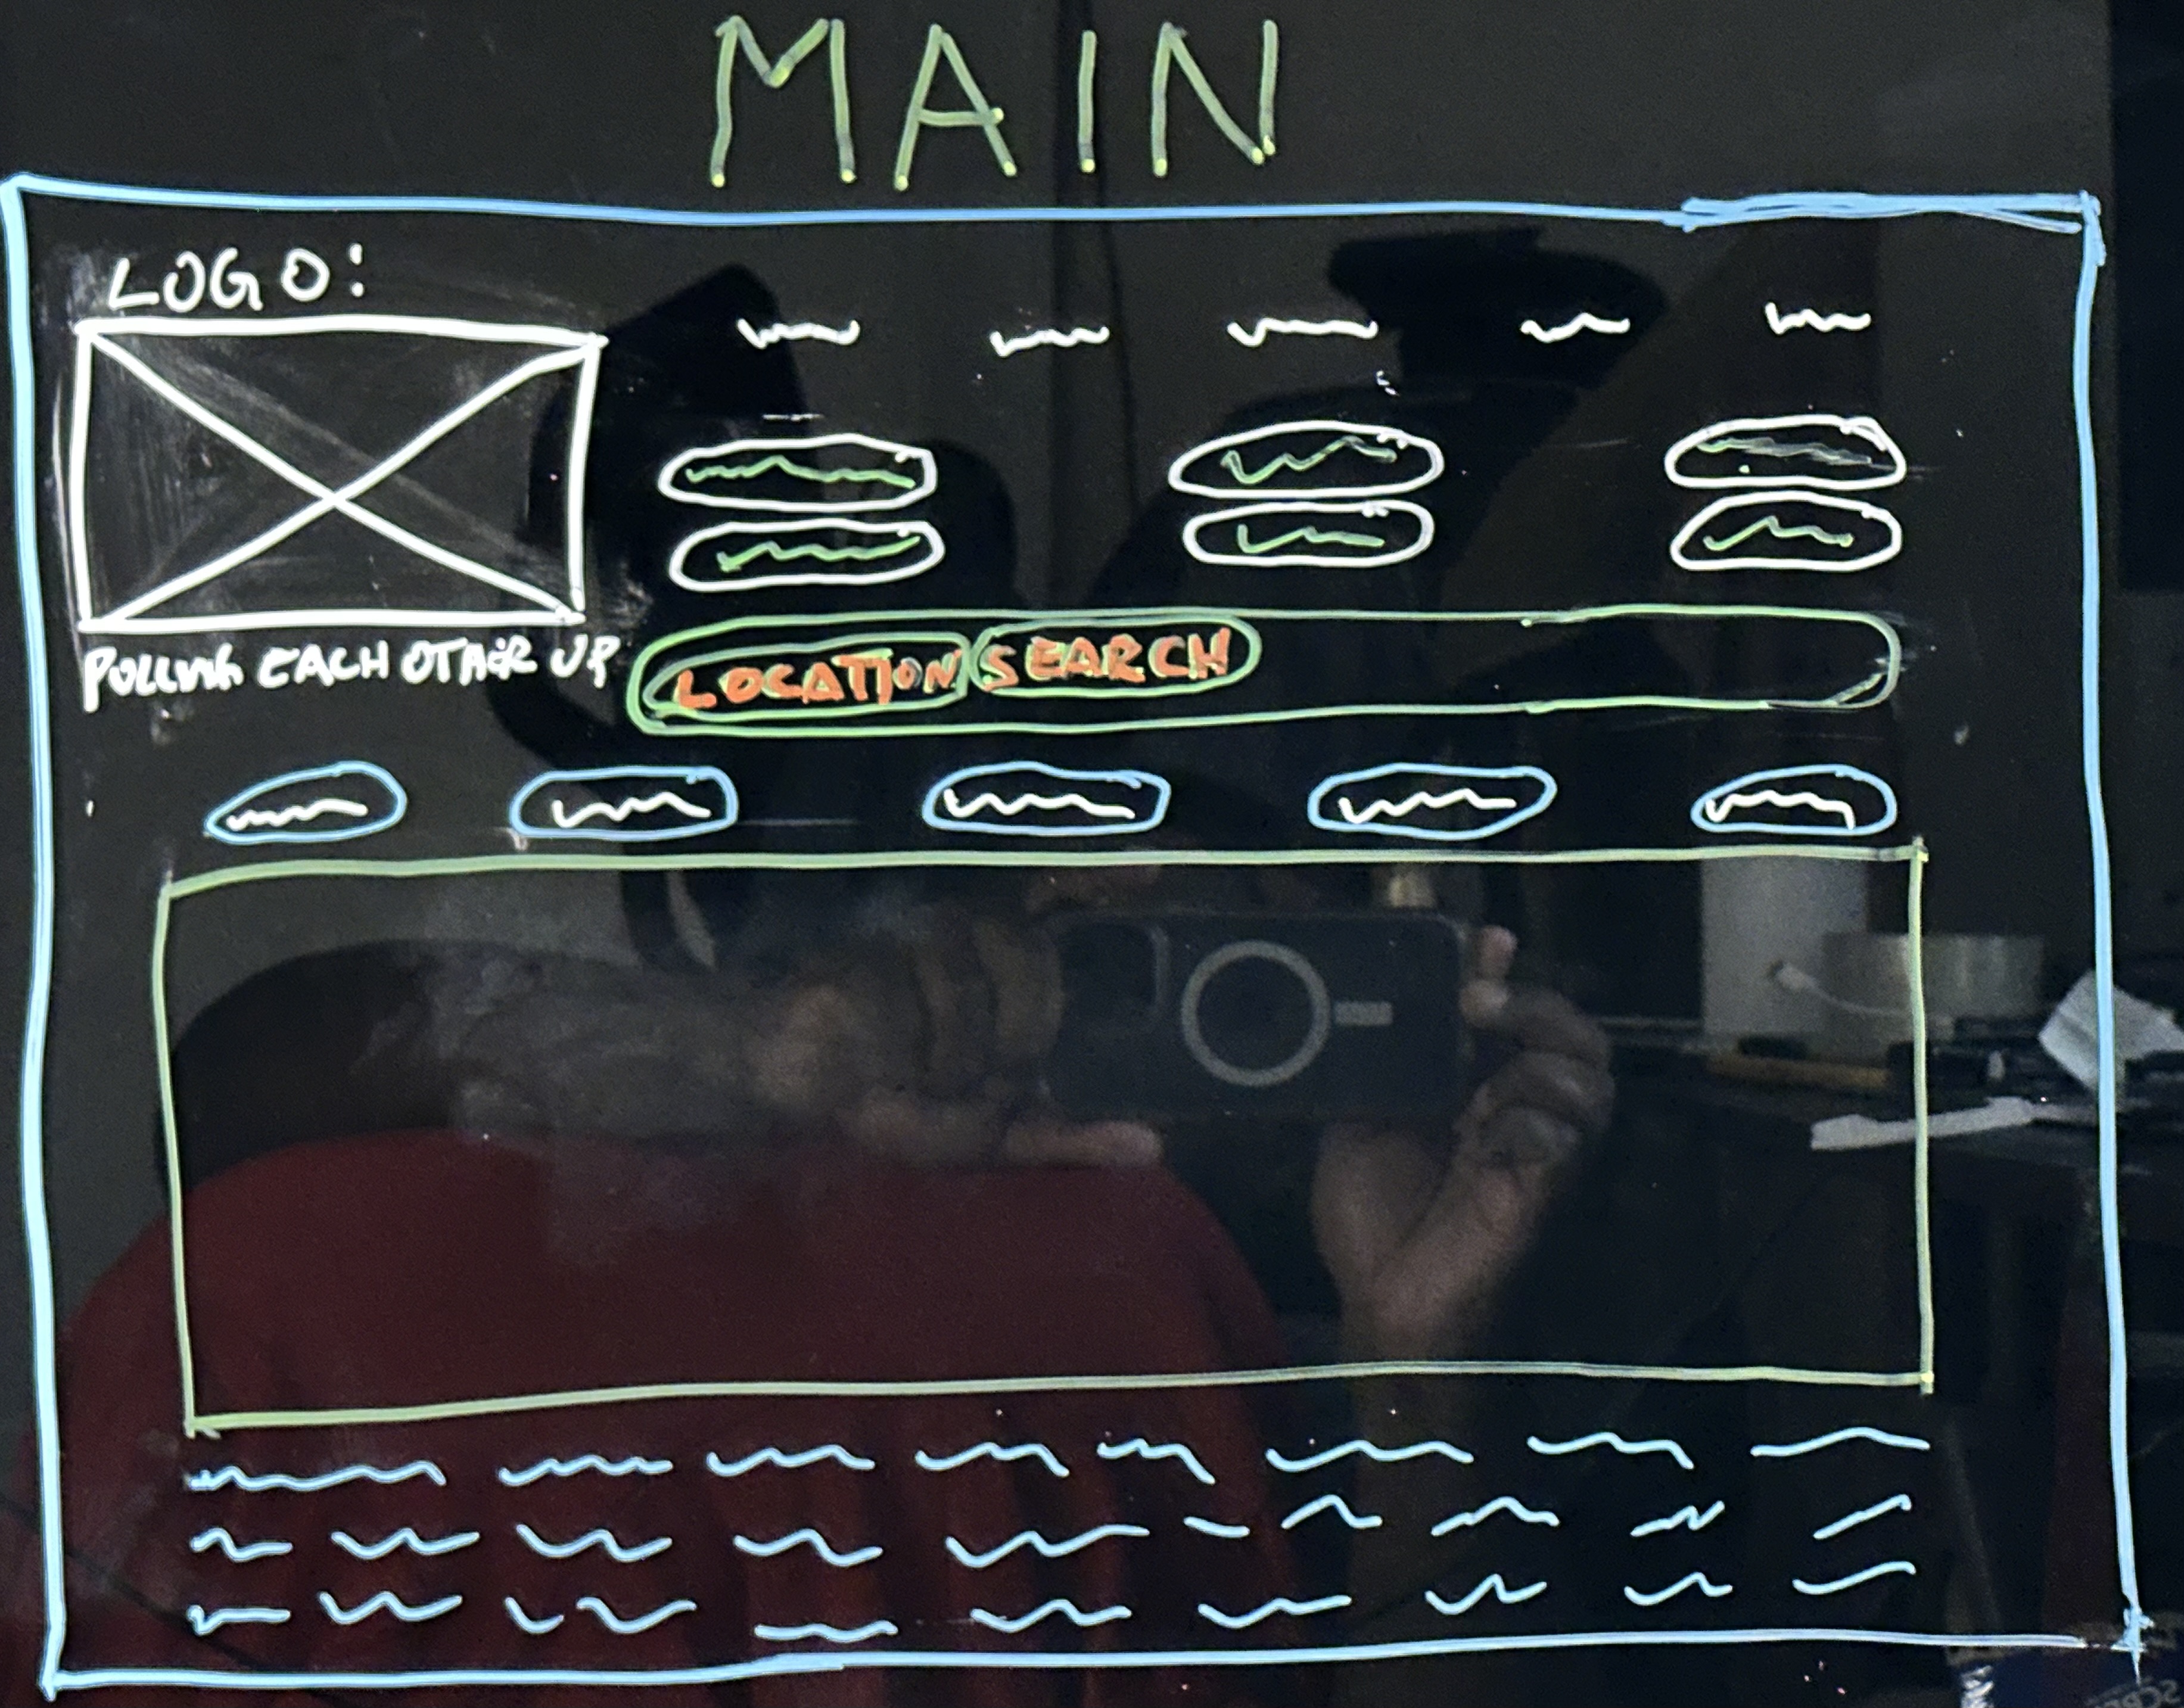 MAIN
LOGO:
PULLING EACH OTHER UP
LOCATION SEARCH